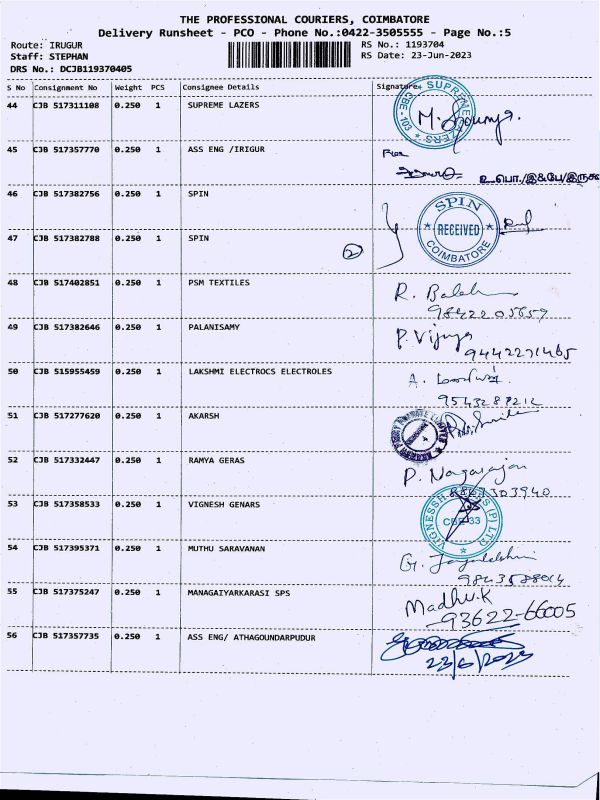 THE PROFESSIONAL COURIERS, COIMBATORE
Delivery Runsheet - PCO - Phone No.:0422-3505555 - Page No.:5
Route: IRUGUR RS No.: 1193704
Staff: STEPHAN RS Date: 23-Jun-2023
DRS No.: DCJB119370405
S No Consignment No Weight PCS Consignee Details Signature
44 CJB 517311108 0.250 1 SUPREME LAZERS
SUPREME LAZERS CBE - 103
45 CJB 517357770 0.250 1 ASS ENG /IRIGUR
For
46 CJB 517382756 0.250 1 SPIN
SPIN RECEIVED COIMBATORE
47 CJB 517382788 0.250 1 SPIN
2
48 CJB 517402851 0.250 1 PSM TEXTILES
R.
49 CJB 517382646 0.250 1 PALANISAMY
P. Vijaya
9442271465
50 CJB 515955459 0.250 1 LAKSHMI ELECTROCS ELECTROLES
A.
51 CJB 517277620 0.250 1 AKARSH
52 CJB 517332447 0.250 1 RAMYA GERAS
P. Nagarajan
53 CJB 517358533 0.250 1 VIGNESH GENARS
54 CJB 517395371 0.250 1 MUTHU SARAVANAN
G.
55 CJB 517375247 0.250 1 MANAGAIYARKARASI SPS
Madhu.K
93622-66005
56 CJB 517357735 0.250 1 ASS ENG/ ATHAGOUNDARPUDUR
23/6/2023